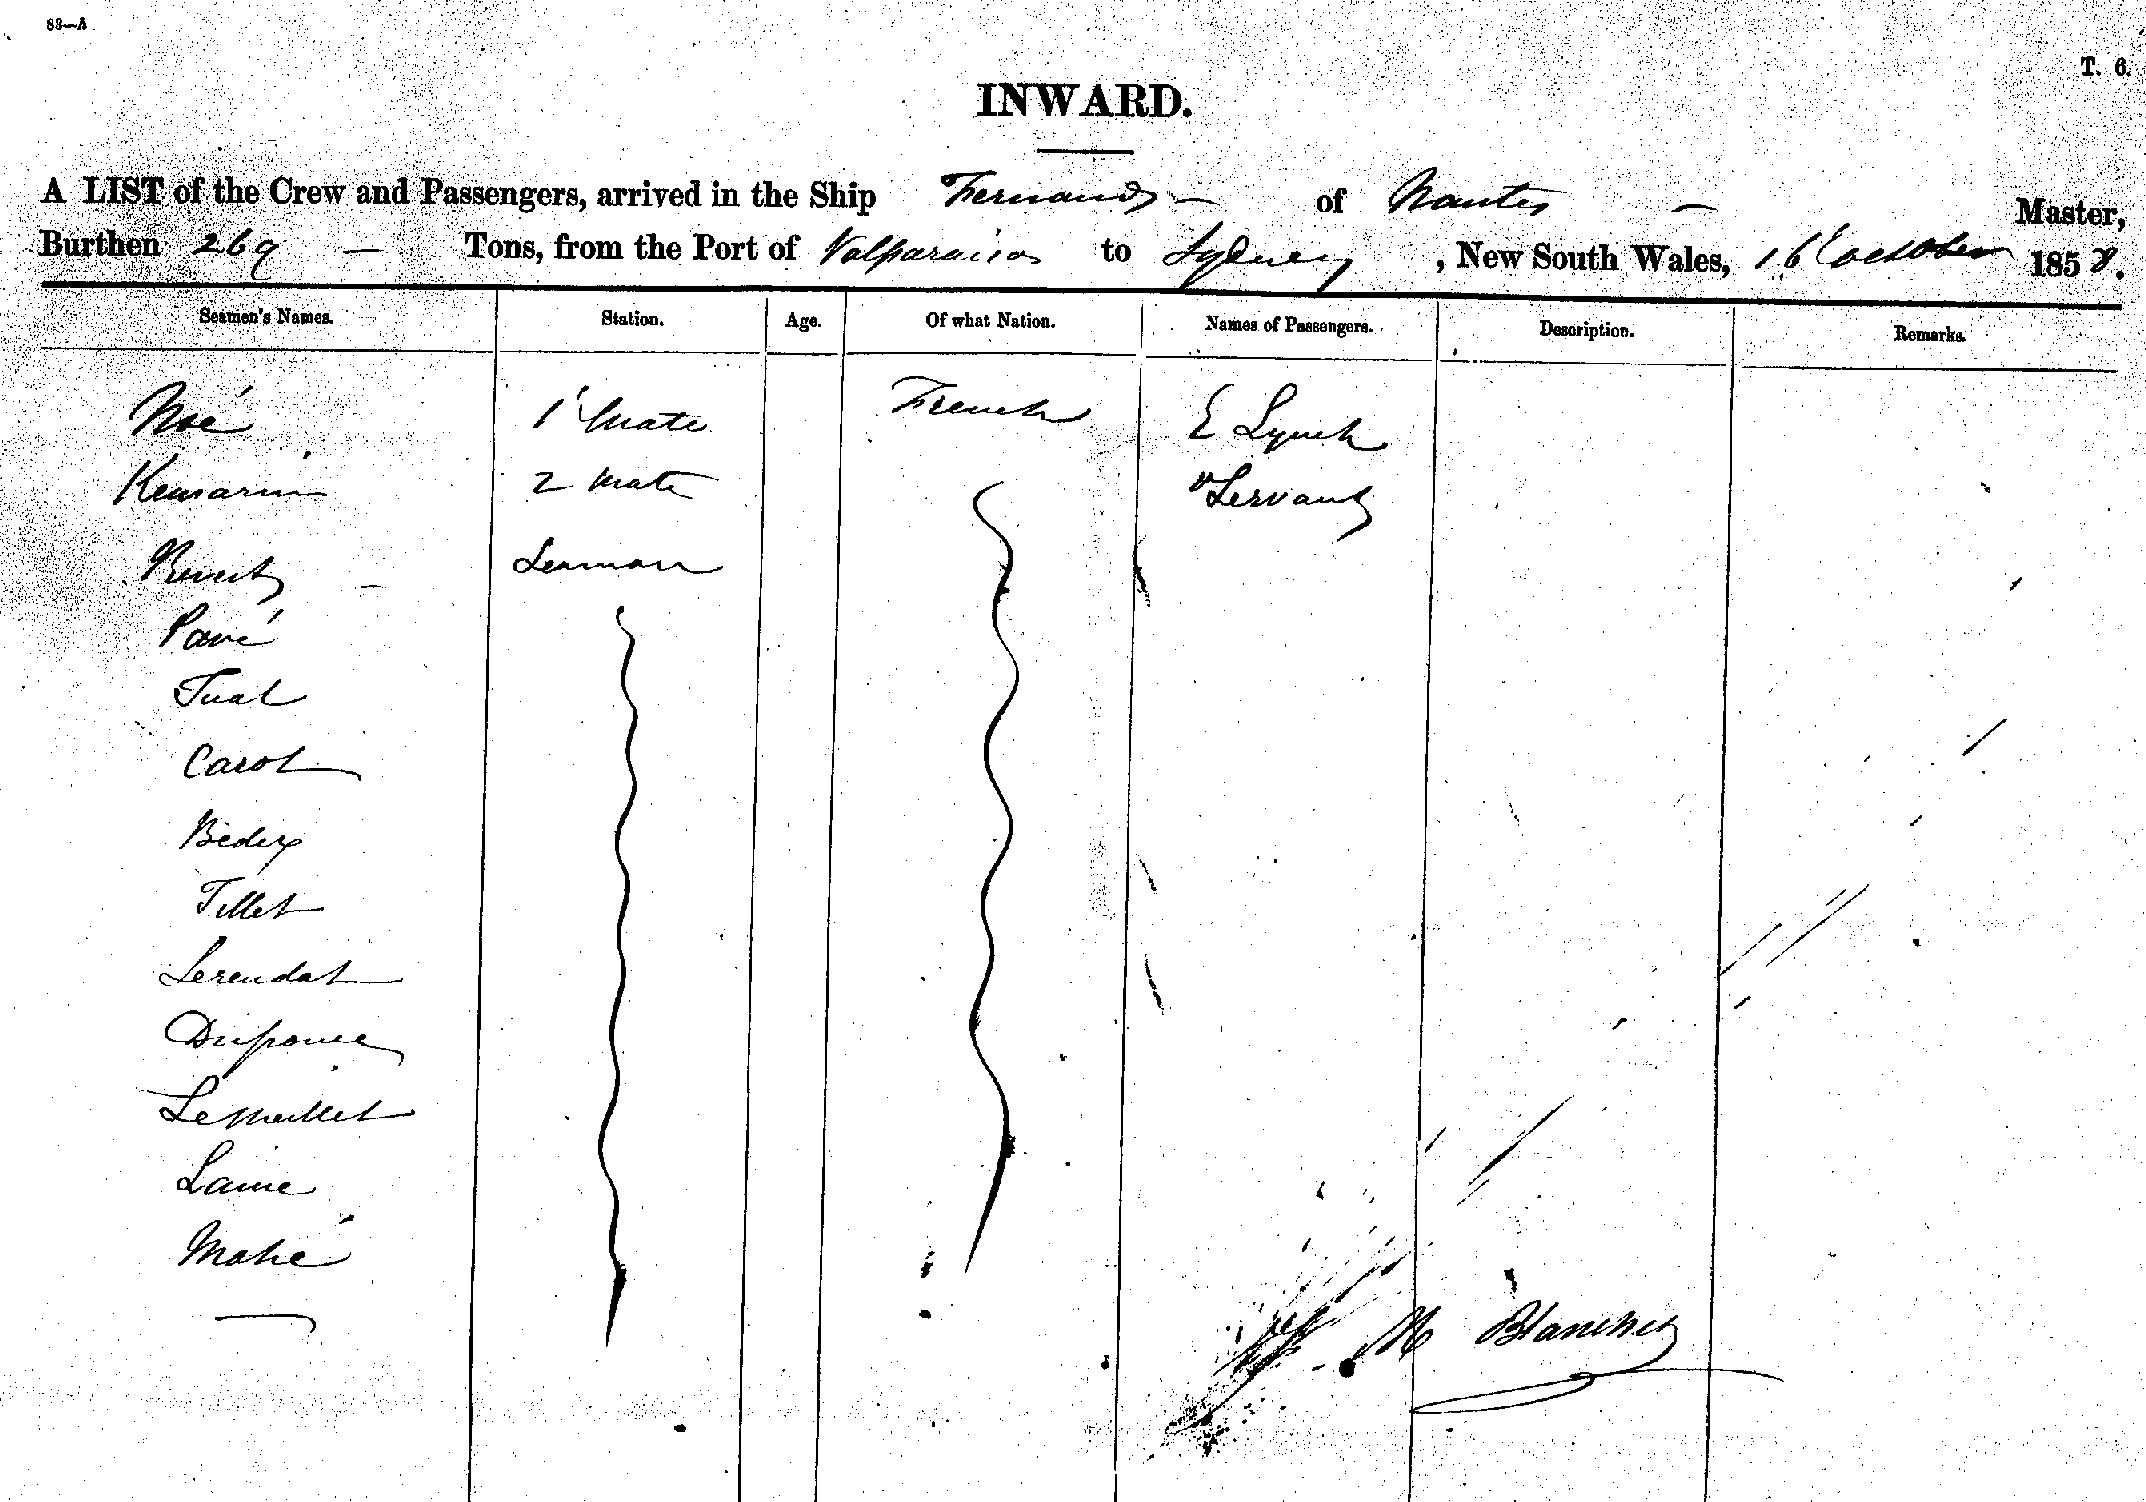 83—A
T. 6.
INWARD.
A LIST of the Crew and Passengers, arrived in the Ship Fernand — of Nantes — Master,
Burthen 269 — Tons, from the Port of Valparaiso to Sydney, New South Wales, 16 October 1858.
Seamen's Names. Station. Age. Of what Nation. Names of Passengers. Description. Remarks.
Noé 1 Mate French E Lynch
2 Mate " Servant
Seaman
Pavé
Tual
Carol
Bedex
Tillet
Lerendat
Lemeillet
Laine
Mahé
M Blanchet